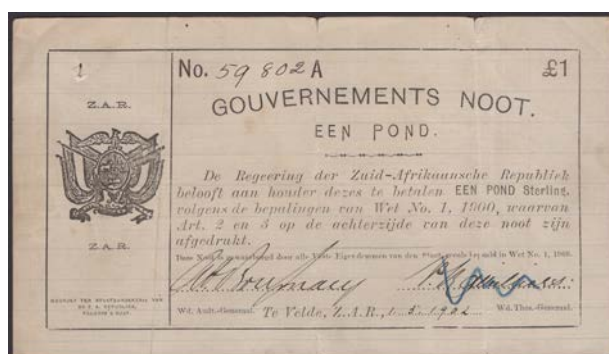 1
No. 59802 A
£1
Z.A.R.
GOUVERNEMENTS NOOT.
EEN POND.
De Regeering der Zuid-Afrikaansche Republiek
belooft aan houder dezes te betalen EEN POND Sterling,
volgens de bepalingen van Wet No. 1, 1900, waarvan
Art. 2 en 5 op de achterzijde van deze noot zijn
afgedrukt.
Z.A.R.
Deze Noot is gewaarborgd door alle Vaste Eigendommen van den Staat, bepaald in Wet No. 1, 1900.
Wd. Audt.-Generaal.
Te Velde, Z.A.R., 1.5.1902
Wd. Thes.-Generaal.